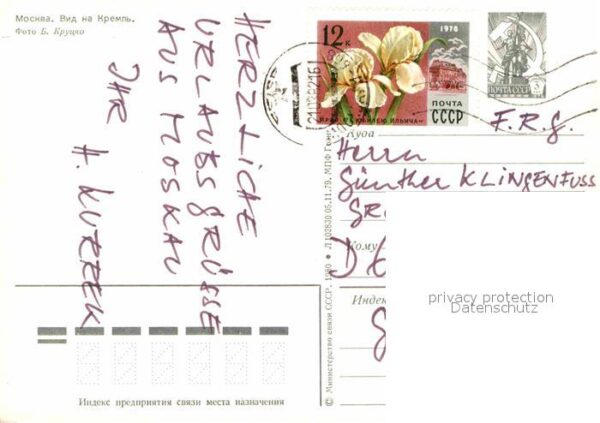 Москва. Вид на Кремль.
Фото Б. Круцко
HERZLICHE
URLAUBSGRÜSSE
AUS MOSKAU
IHR H. KURREK
12 к
1978
ПОЧТА
СССР
ПОЧТА СССР
F.R.G.
Куда
Herrn
Günther KLINGENFUSS
GR
Кому
D 6
Индек
privacy protection
Datenschutz
© Министерство связи СССР, 1980 • Л 102830 05.11.79. МПФ Гозн
Индекс предприятия связи места назначения